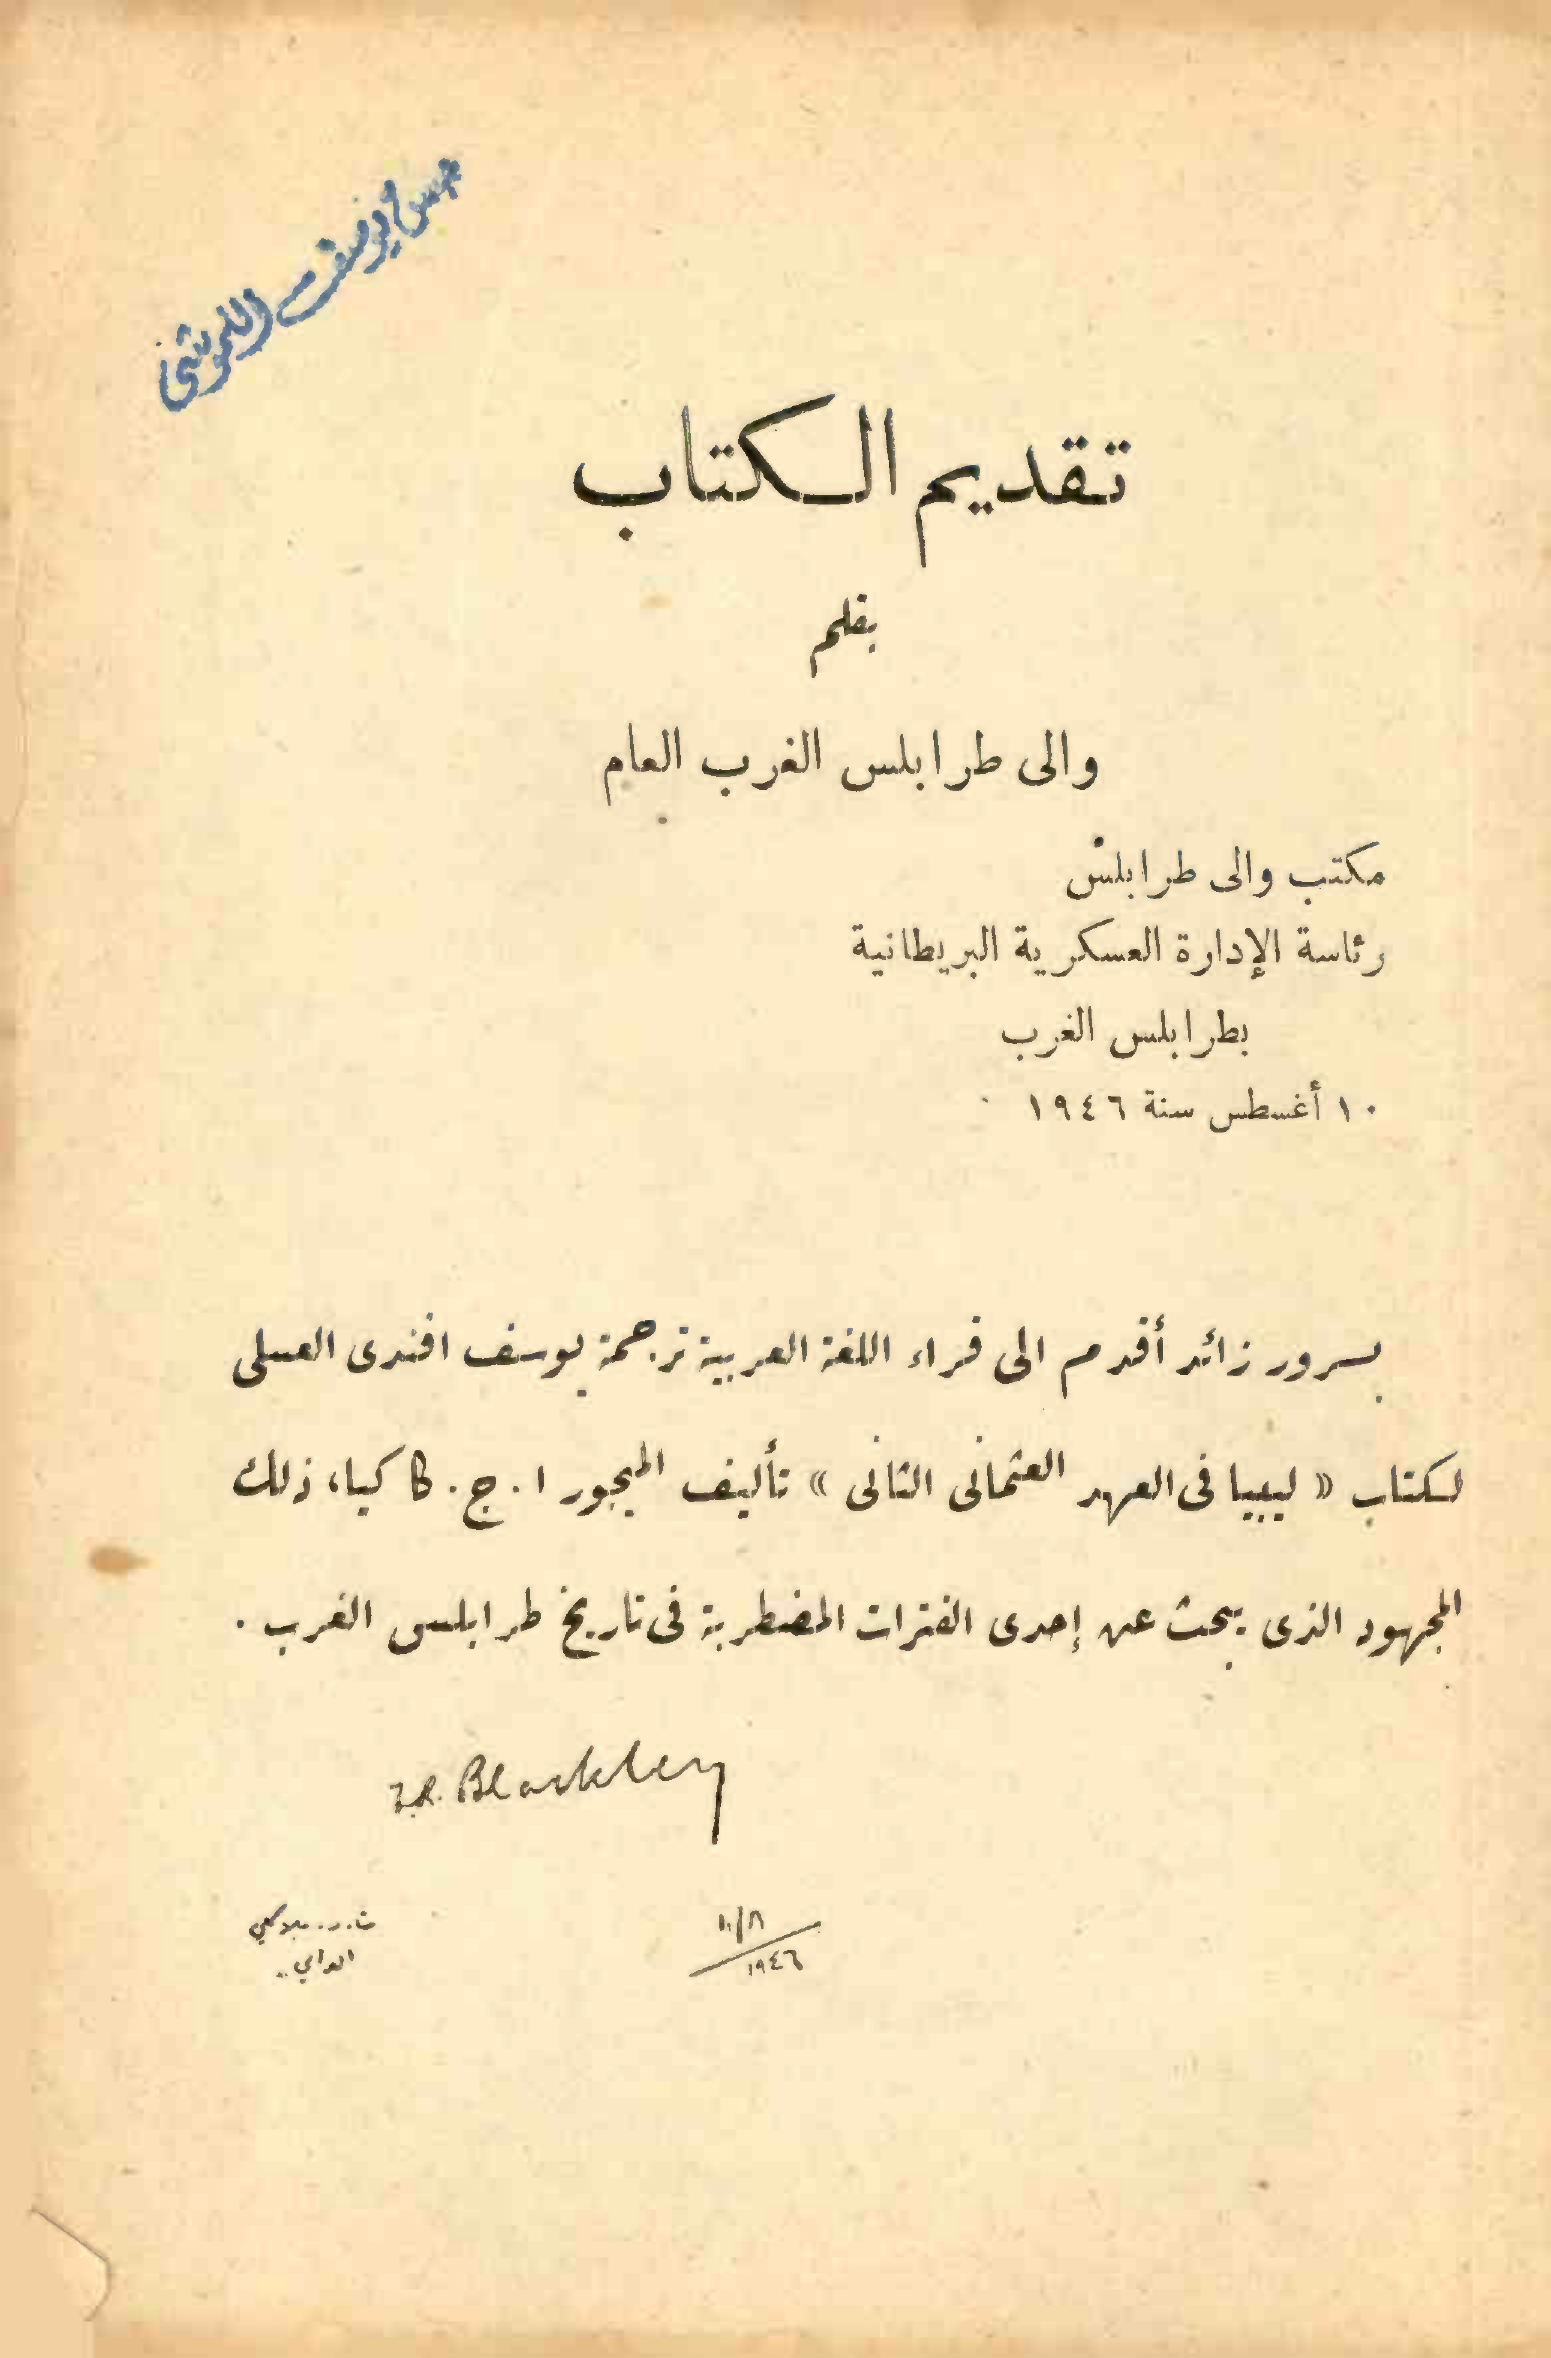 يوسف
تقديم الكتاب
بقلم
والى طرابلس الغرب العام
مكتب والى طرابلس
رئاسة الإدارة العسكرية البريطانية
بطرابلس الغرب
١٠ أغسطس سنة ١٩٤٦
بسرور زائد أقدم الى قراء اللغة العربية ترجمة يوسف افندى العسلى
لكتاب « ليبيا فى العهد العثمانى الثانى » تأليف الميجور ا . ج . كاكيا، ذلك
المجهود الذى يبحث عن إحدى الفترات المضطربة فى تاريخ طرابلس الغرب .
T.R. Blackley
١٠/٨
١٩٤٦
ت . ر . بلاكلي
الوالي